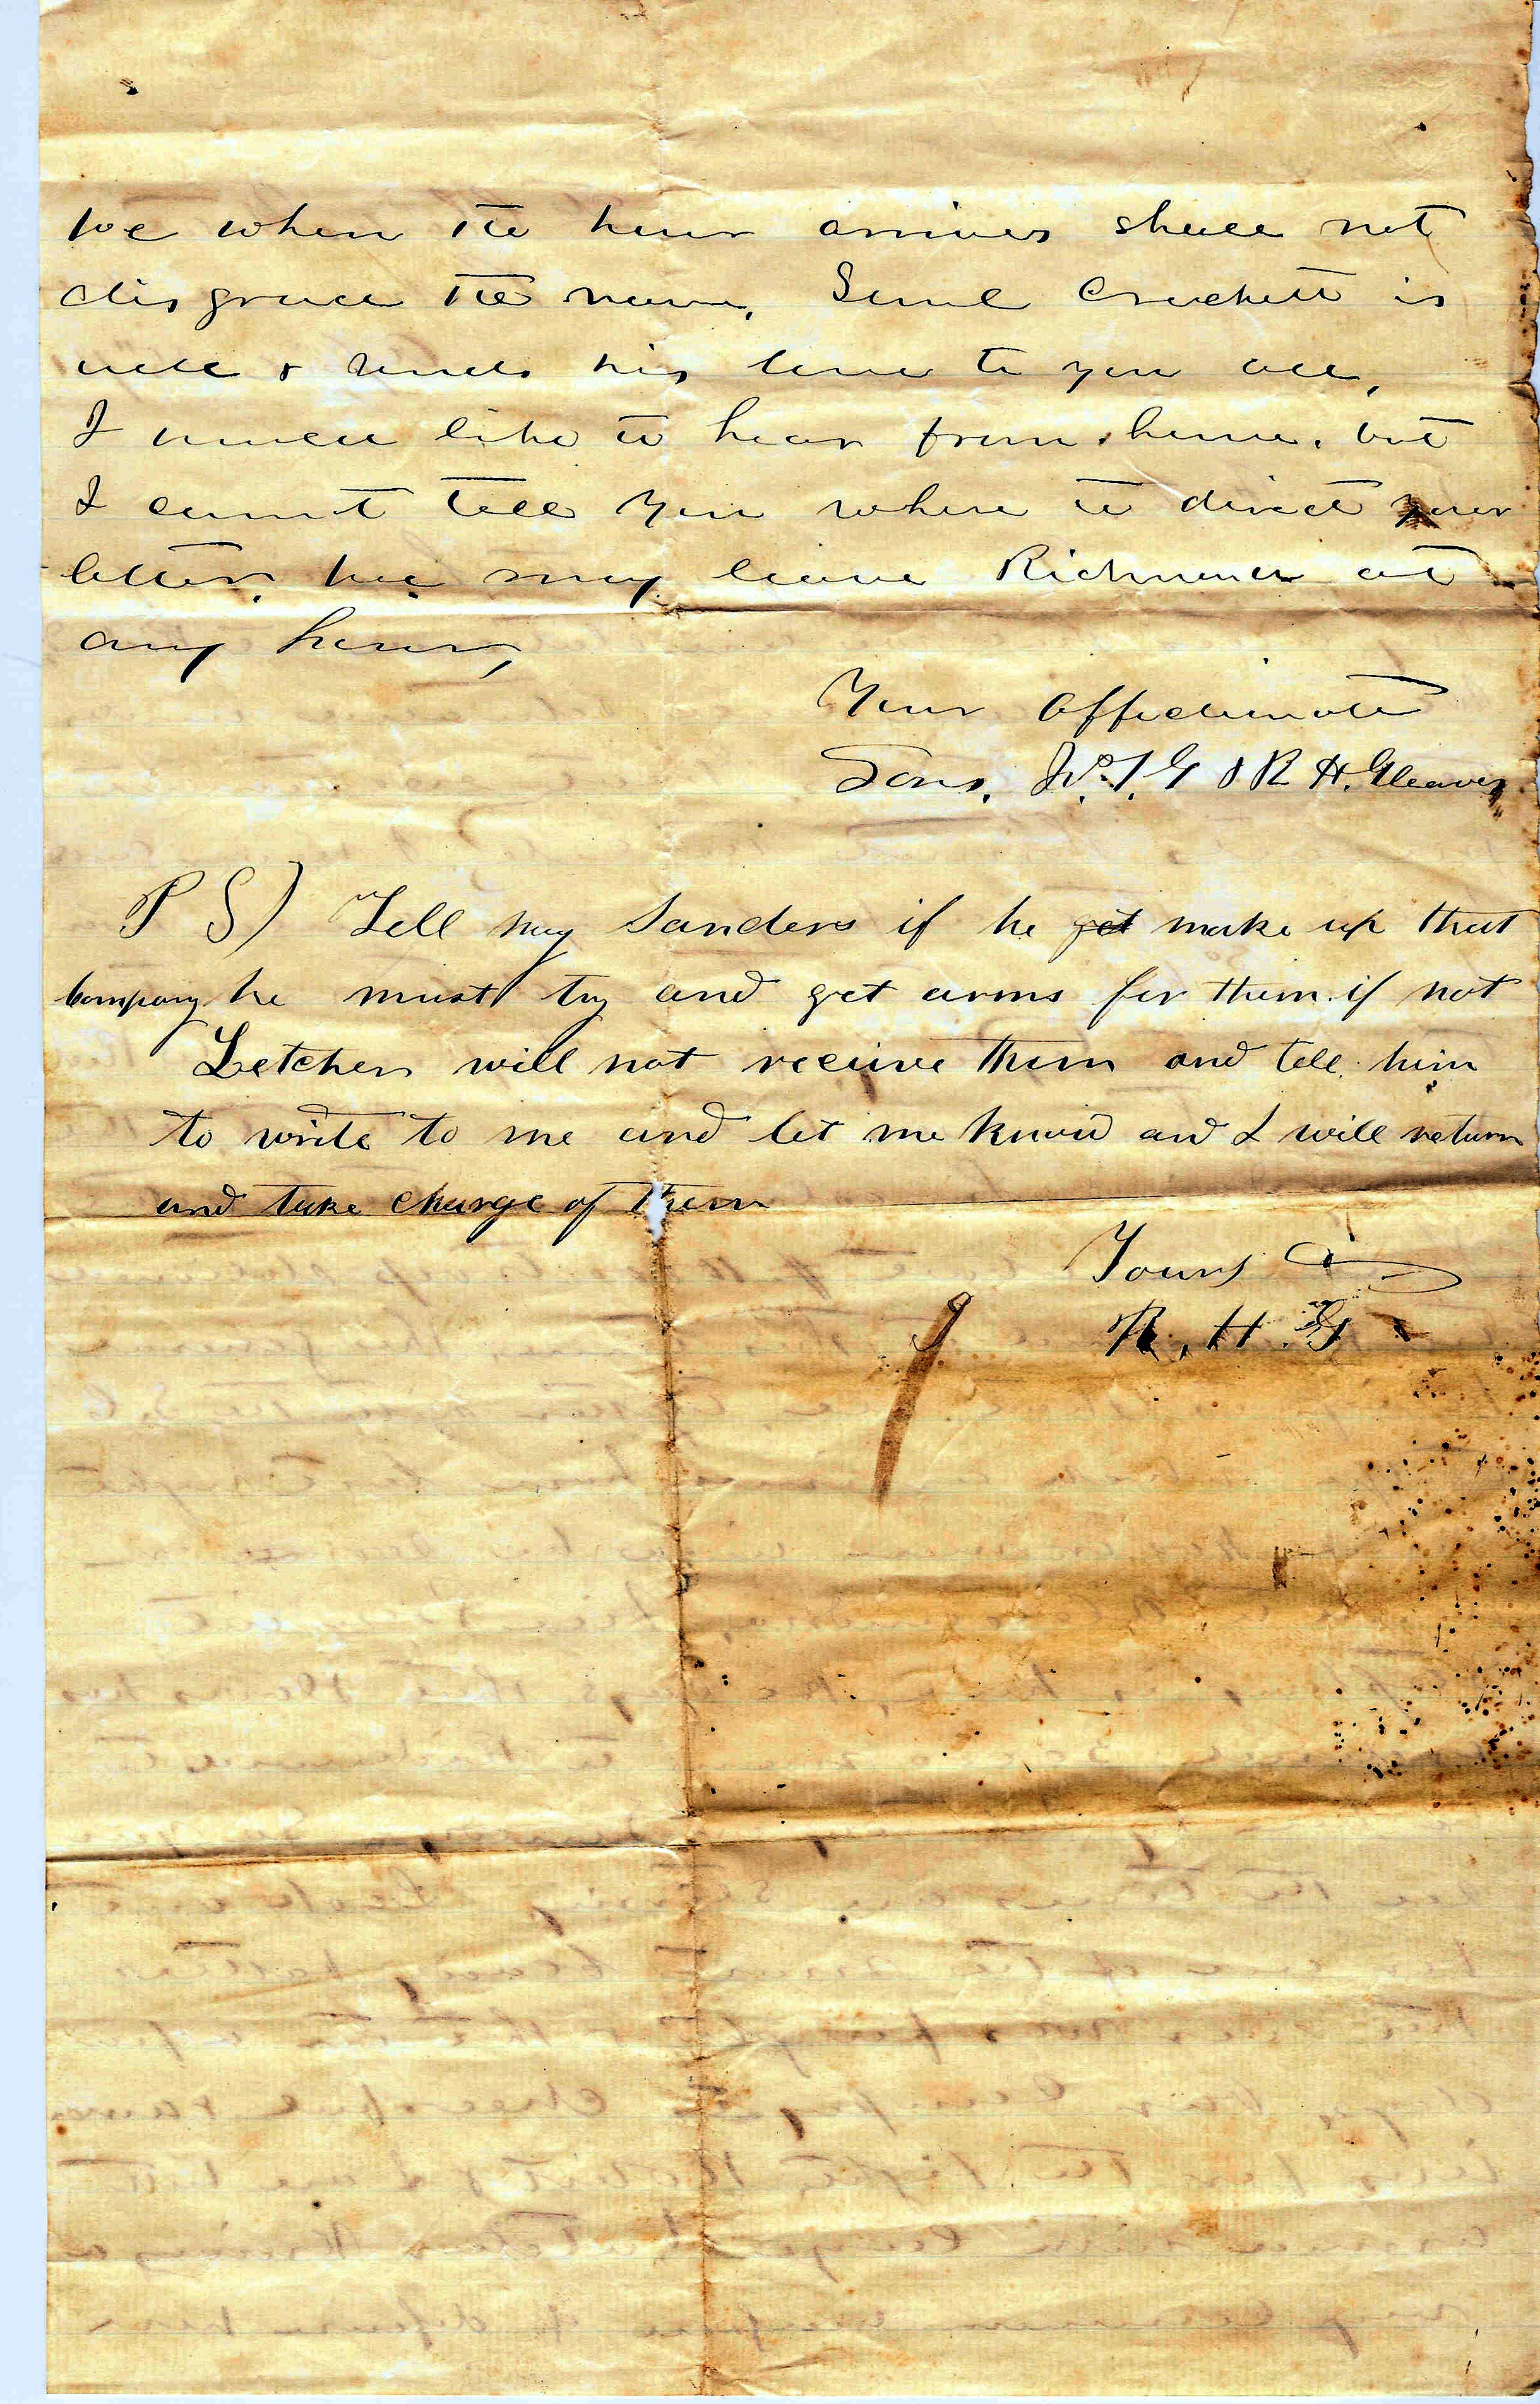 we when the hour arrives shall not
disgrace the name. Saml Crockett is
well & sends his love to you all,
I would like to hear from home, but
I cannot tell you where to direct your
letter, we may leave Richmond at
any hour,
Your Affectionate
Sons, W. T. G & R H. Gleaves
P S) Tell Sanders if he get make up that
Company he must try and get arms for them if not
Letcher will not receive them and tell him
to write to me and let me know and I will return
and take charge of them
Yours
R. H. G